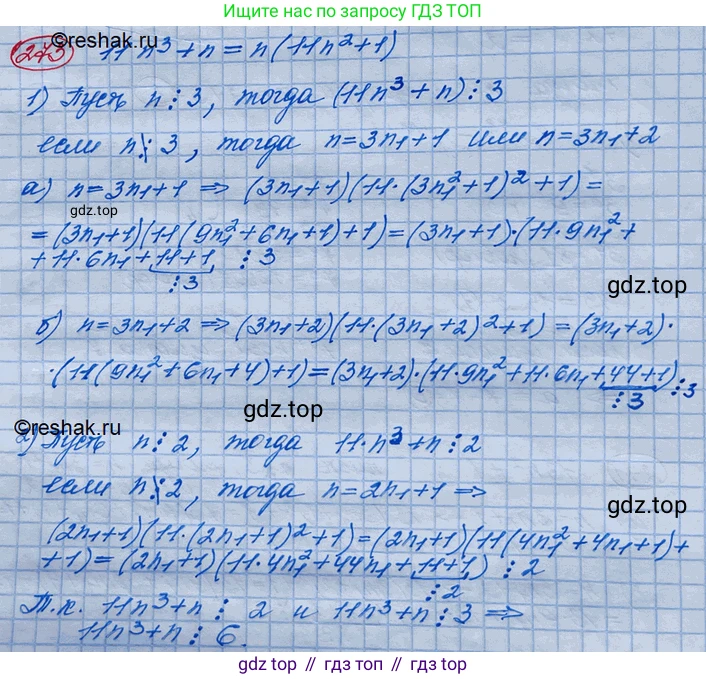 Ищите нас по запросу ГДЗ ТОП
©reshak.ru
273 11n³+n = n(11n²+1)
1) Пусть n⋮3, тогда (11n³+n)⋮3
если n⋮̸3, тогда n=3n₁+1 или n=3n₁+2
а) n=3n₁+1 ⇒ (3n₁+1)(11·(3n₁²+1)²+1)=
gdz.top
=(3n₁+1)(11(9n₁²+6n₁+1)+1)=(3n₁+1)·(11·9n₁²+
+11·6n₁+11+1) ⋮3
⋮3
gdz.top
б) n=3n₁+2 ⇒ (3n₁+2)(11·(3n₁+2)²+1)=(3n₁+2)·
·(11(9n₁²+6n₁+4)+1)=(3n₁+2)·(11·9n₁²+11·6n₁+44+1)⋮3
⋮3
gdz.top
©reshak.ru
2) Пусть n⋮2, тогда 11·n³+n⋮2
если n⋮̸2, тогда n=2n₁+1 ⇒
gdz.top
(2n₁+1)(11·(2n₁+1)²+1)=(2n₁+1)(11(4n₁²+4n₁+1)+
+1)=(2n₁+1)(11·4n₁²+44n₁+11+1) ⋮2
⋮2
Т.к. 11n³+n⋮2 и 11n³+n⋮3 ⇒
11n³+n⋮6.
gdz.top // гдз топ // гдз.top